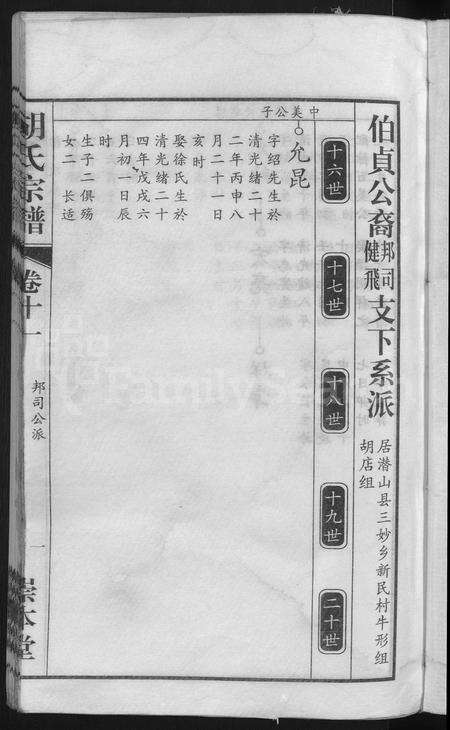 伯貞公裔邦司健飛支下系派
居潜山县三妙乡新民村牛形组
胡店组
十六世
十七世
十八世
十九世
二十世
中美公子
允昆
字绍先生於
清光绪二十
二年丙申八
月二十一日
亥时
娶徐氏生於
清光绪二十
四年戊戌六
月初一日辰
时
生子二俱殇
女二 长适
胡氏宗譜
卷十一
邦司公派
一
崇本堂